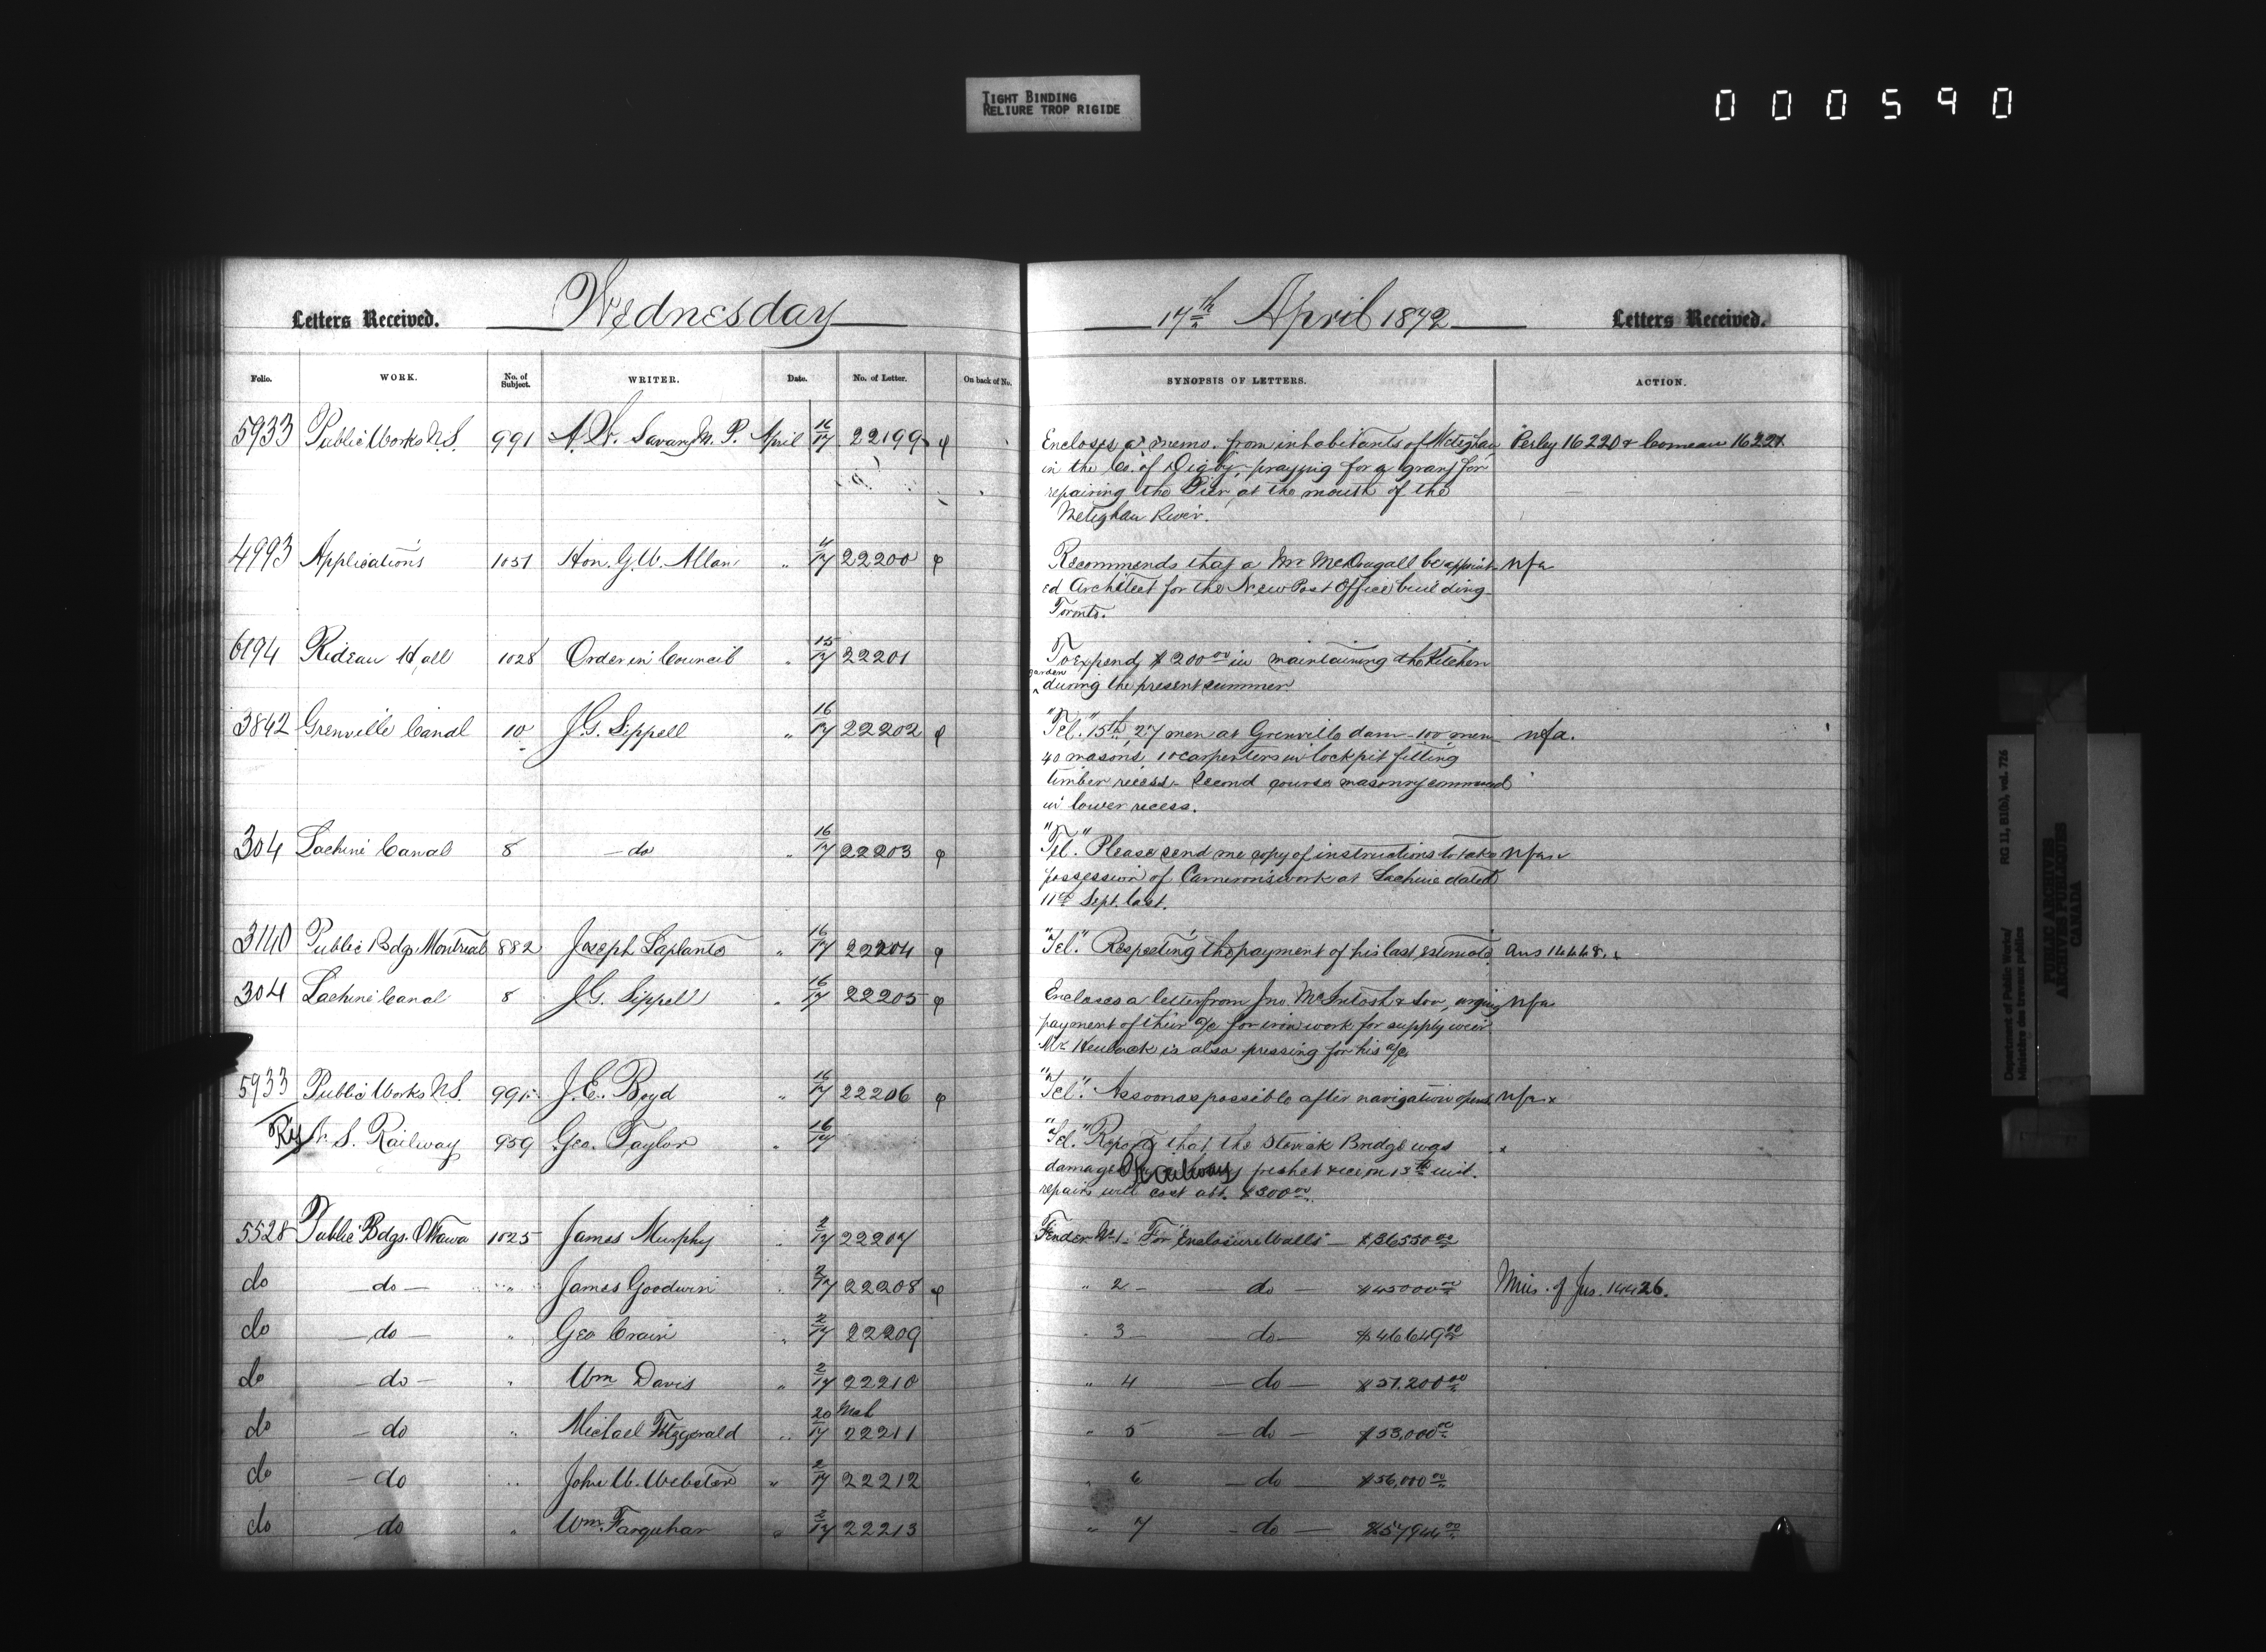 TIGHT BINDING
RELIURE TROP RIGIDE
000590
Letters Received. Wednesday 17th April 1872 Letters Received.
Folio. WORK. No. of Subject. WRITER. Date. No. of Letter. On back of No. SYNOPSIS OF LETTERS. ACTION.
5933 Public Works N.S. 991 A. W. Savary M. P. April 16/17 22199 φ Encloses a memo. from inhabitants of Meteghan Perley 16220 & Comeau 16221
in the Co. of Digby, praying for a grant for
repairing the Pier at the mouth of the
Meteghan River.
4993 Applications 1051 Hon. G. W. Allan " 17 22200 φ Recommends that a Mr McDougall be appoint- nfa
ed Architect for the New Post Office building
Toronto.
6194 Rideau Hall 1028 Order in Council " 15/17 22201 To expend $200.00 in maintaining the Kitchen
garden
during the present summer
3842 Grenville Canal 10 J. G. Sippell " 16/17 22202 φ "Tel." 15th, 27 men at Grenville dam - 100 men nfa.
40 masons, 10 carpenters in lock pit fitting
timber recess - Second course masonry commenced
in lower recess.
304 Lachine Canal 8 — do " 16/17 22203 φ "Tel." Please send me copy of instructions to take nfa
possession of Cameron's work at Lachine dated
11th Sept. last.
3140 Public Bdgs Montreal 882 Joseph Laplante " 16/17 22204 φ "Tel." Respecting the payment of his last estimate. Ans 14448.
304 Lachine Canal 8 J. G. Sippell " 16/17 22205 φ Encloses a letter from Jno. McIntosh & Son, urging nfa
payment of their a/c for iron work for supply weir
Mr is also pressing for his a/c
5933 Public Works N.S. 991 J. E. Boyd " 16/17 22206 φ "Tel." As soon as possible after navigation opens nfa x
Ry N. S. Railway 959 Geo. Taylor " 16/17 "Tel." Reports that the Bridge was x
damaged Railway freshet & ice on 13th inst.
repairs will cost abt. $300.00
5528 Public Bdgs. Ottawa 1025 James Murphy " 2/17 22207 Tender No 1 - For "Enclosure Walls" — $36550.00
do — do — " James Goodwin " 2/17 22208 φ " 2 — — do — $45000.00 Min. of Jus. 14426.
do — do — " Geo Crain " 2/17 22209 " 3 — — do — $46649.00
do — do — " Wm Davis " 2/17 22210 " 4 — do — $51.200.00
do — do " Michael Fitzgerald " 20 Mch/17 22211 " 5 — do — $53,000.00
do — do " John W. Webster " 2/17 22212 " 6 — do — $56,000.00
do do " Wm. Farquhar " 2/17 22213 " 7 — do — $57944.00
Department of Public Works/
Ministère des travaux publics
RG 11, B1(b), vol. 726
PUBLIC ARCHIVES
ARCHIVES PUBLIQUES
CANADA